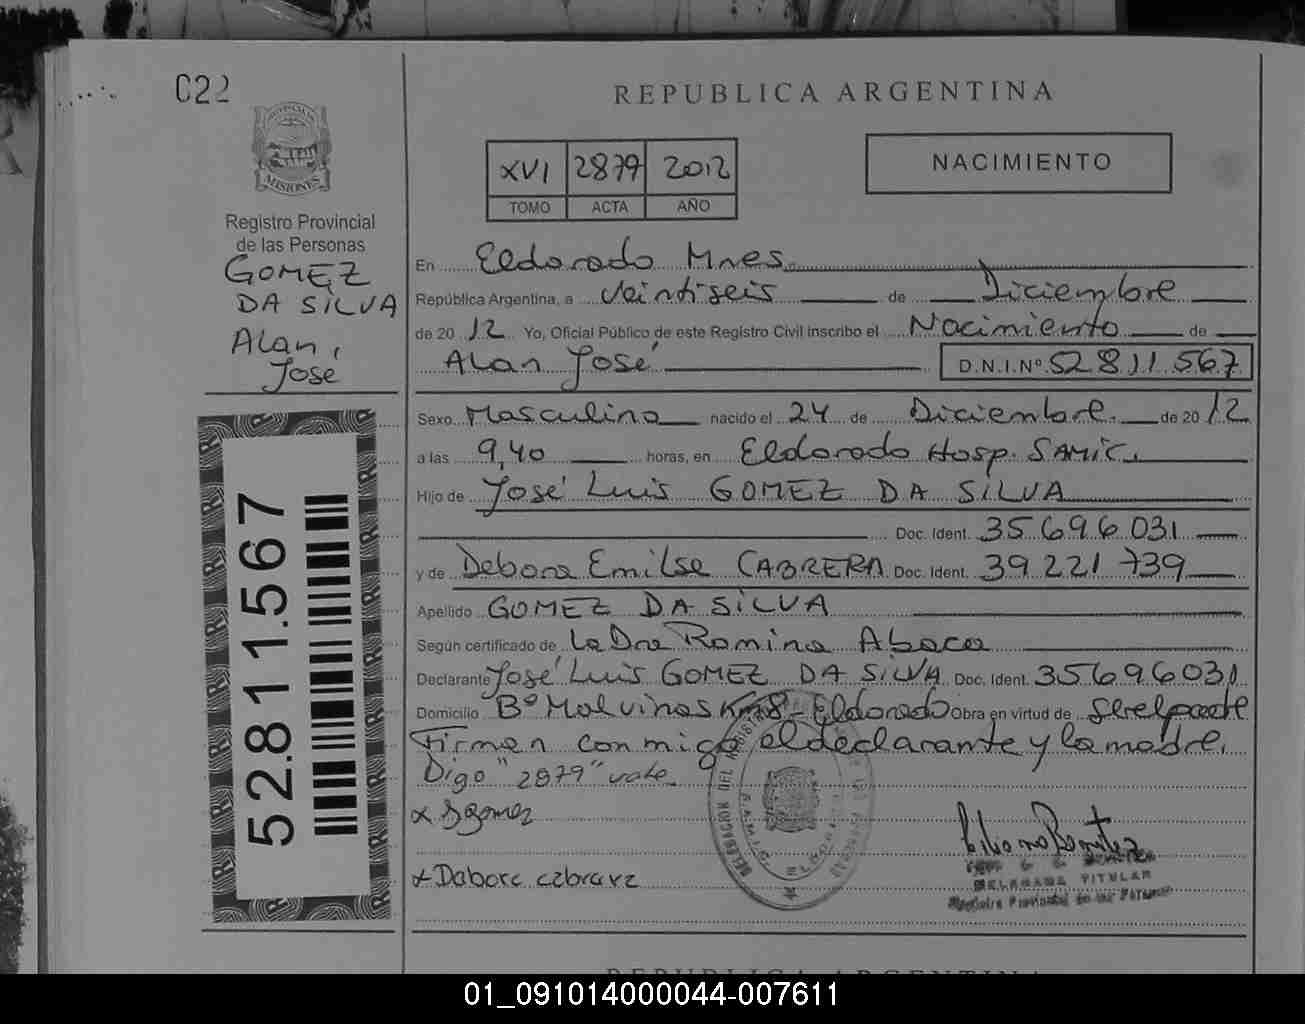 022
PROVINCIA DE
MISIONES
Registro Provincial
de las Personas
GOMEZ
DA SILVA
Alan,
José
52.811.567
REPUBLICA ARGENTINA
XVI 2879 2012
TOMO ACTA AÑO
NACIMIENTO
En Eldorado Mnes.
República Argentina, a Veintiseis de Diciembre
de 2012 Yo, Oficial Público de este Registro Civil inscribo el Nacimiento de
Alan José D.N.I.Nº 52811567
Sexo Masculino nacido el 24 de Diciembre de 2012
a las 9,40 horas, en Eldorado Hosp. SAMIC.
Hijo de José Luis GOMEZ DA SILVA
Doc. Ident. 35.696.031
y de Debora Emilse CABRERA Doc. Ident. 39.221.739
Apellido GOMEZ DA SILVA
Según certificado de La Dra Romina Abaca
Declarante José Luis GOMEZ DA SILVA Doc. Ident. 35696031
Domicilio Bº Malvinas Km8 - Eldorado Obra en virtud de ser el padre
Firman conmigo el declarante y la madre.
Digo "2879" vale
x Jgomez
x Dabore cabrera
Liliana Benitez
DELEGADA TITULAR
Registro Provincial de las Personas
REPUBLICA ARGENTINA
01_091014000044-007611